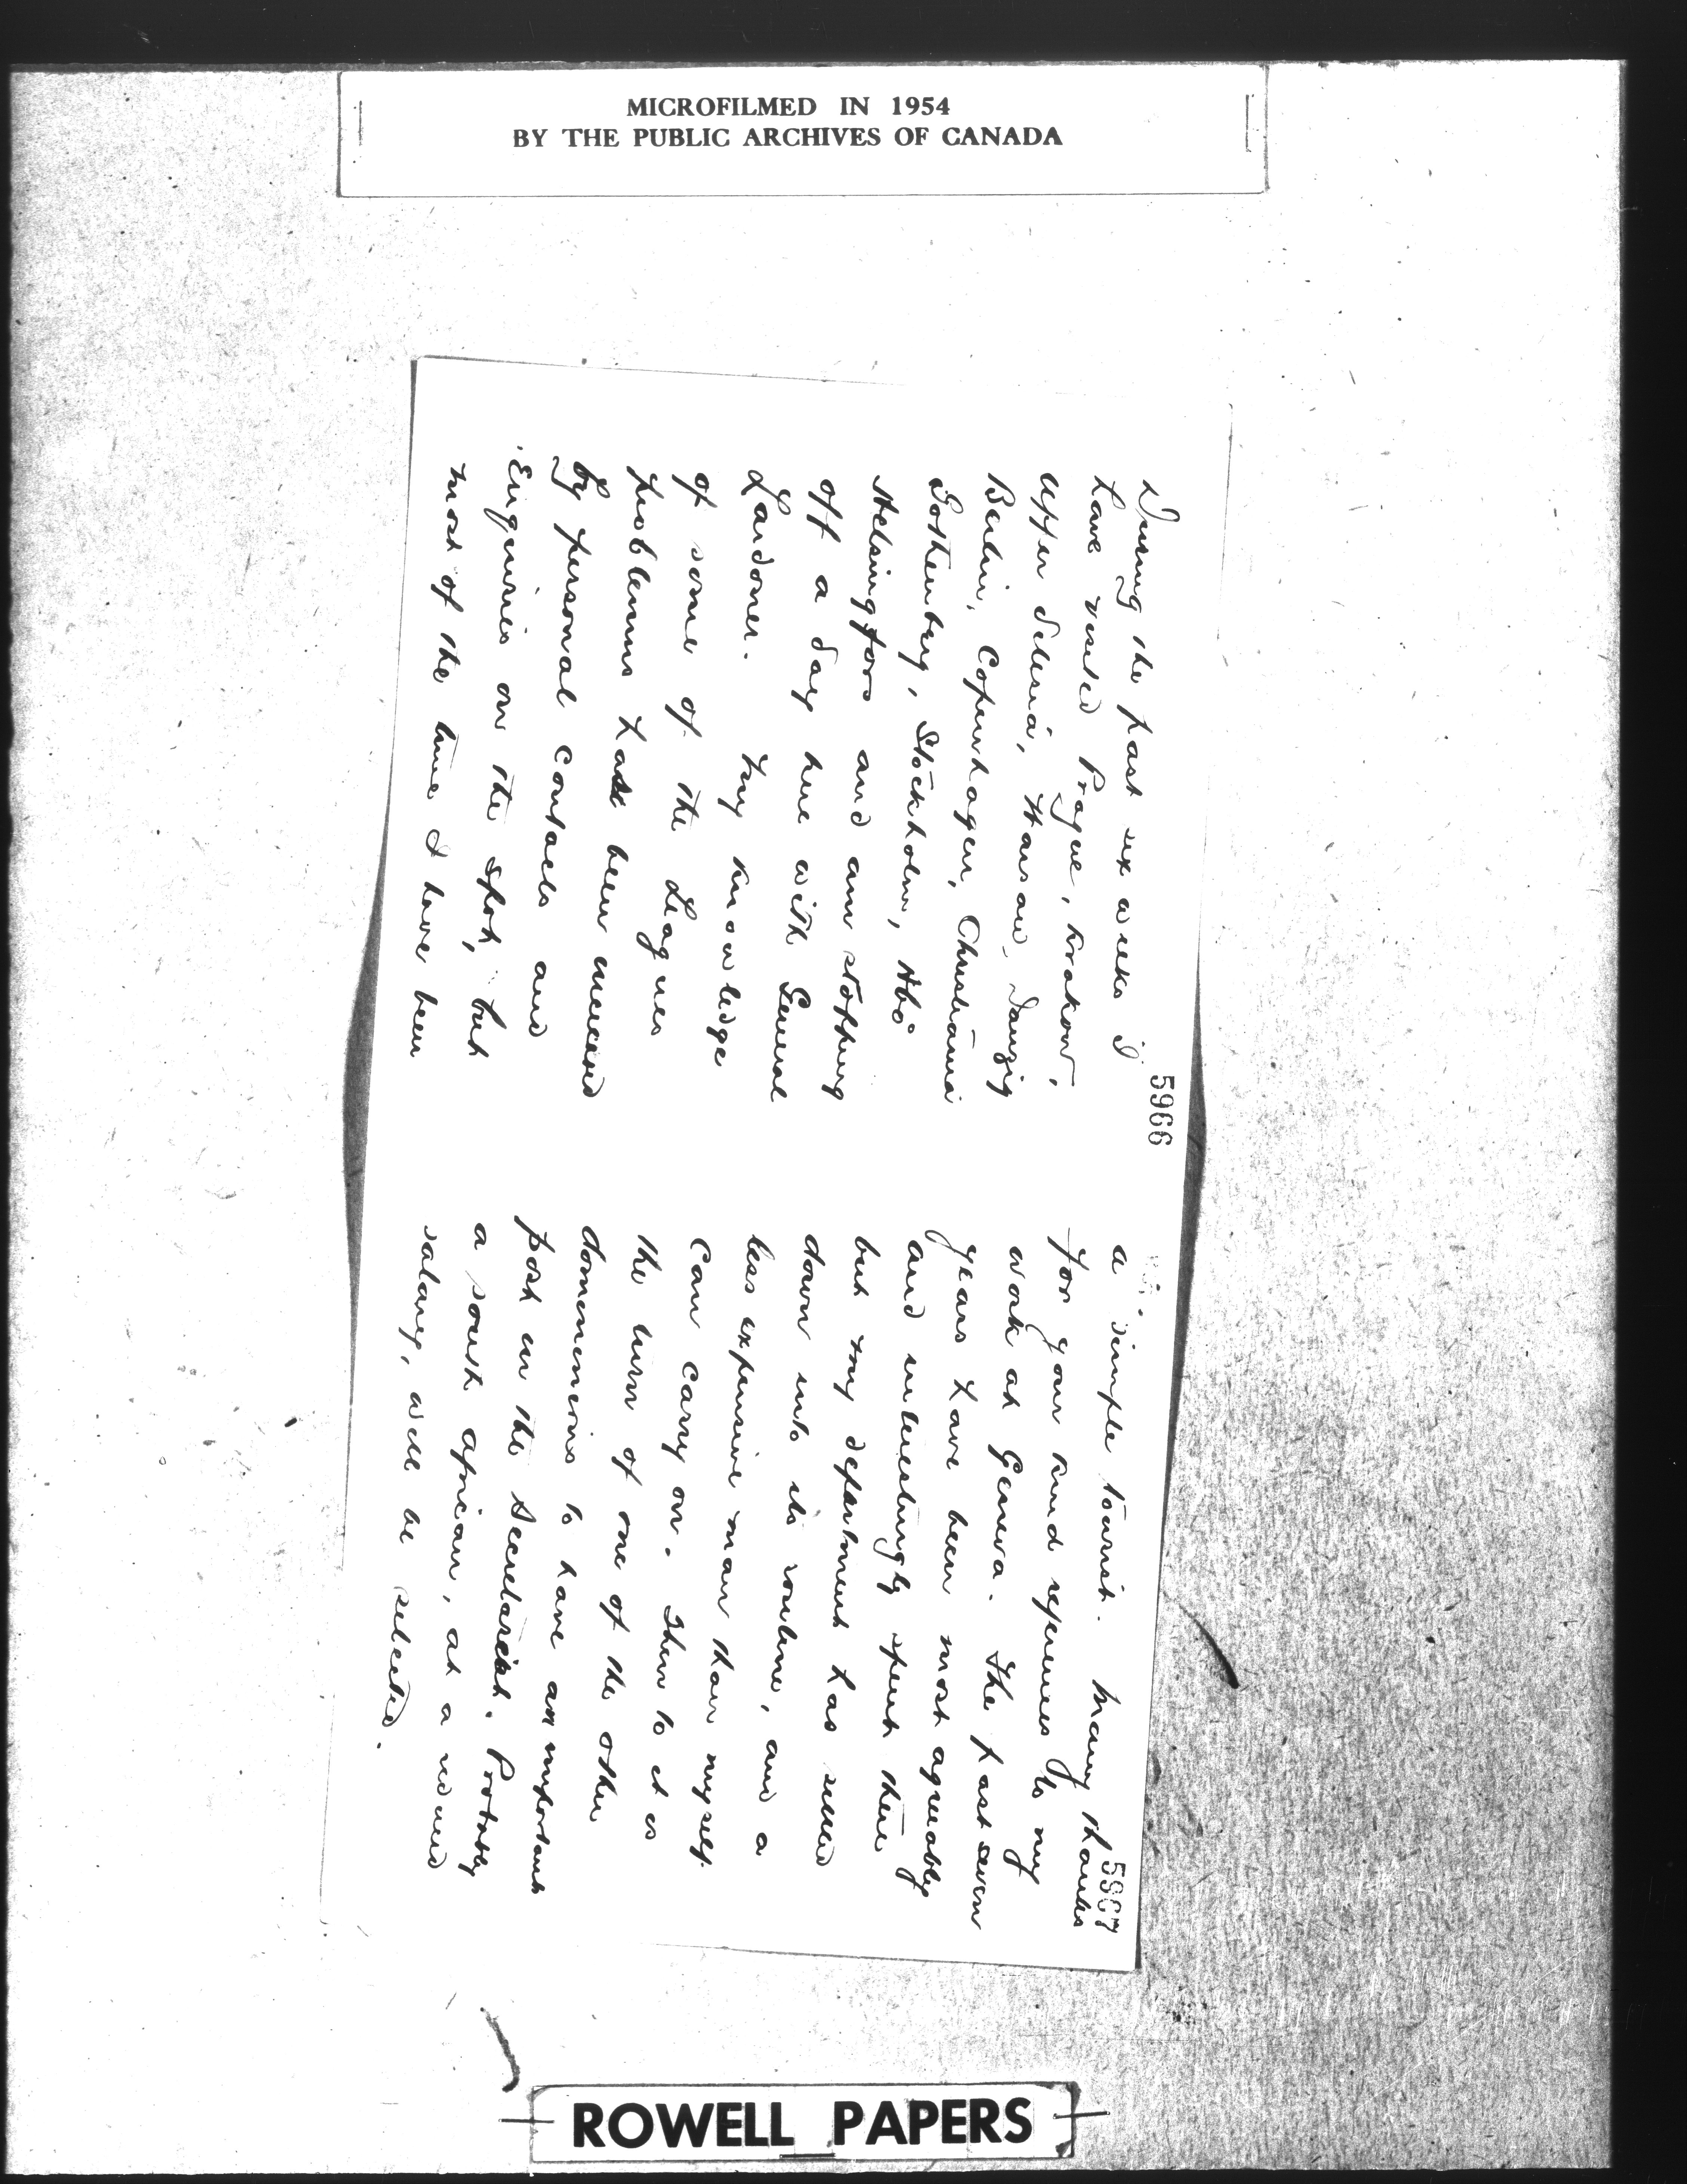 MICROFILMED IN 1954
BY THE PUBLIC ARCHIVES OF CANADA
5966
During the past six weeks I
have visited Prague, Krakow,
Upper Silesia, Warsaw, Danzig
Berlin, Copenhagen, Christiania
Gothenburg, Stockholm, Abo
Helsingfors and am stopping
off a day here with General
Laidoner. My knowledge
of some of the Leagues
problems has been increased
by personal contacts and
Enquiries on the spot, but
most of the time I have been
5967
a simple tourist. Many thanks
for your kind references to my
work at Geneva. The past seven
years have been most agreeably
and interestingly spent there
but my department has settled
down into its routine, and a
less expensive man than myself
can carry on. Then to it is
the turn of one of the other
dominions to have an important
post in the Secretariat. Probably
a South African, at a reduced
salary, will be selected.
ROWELL PAPERS